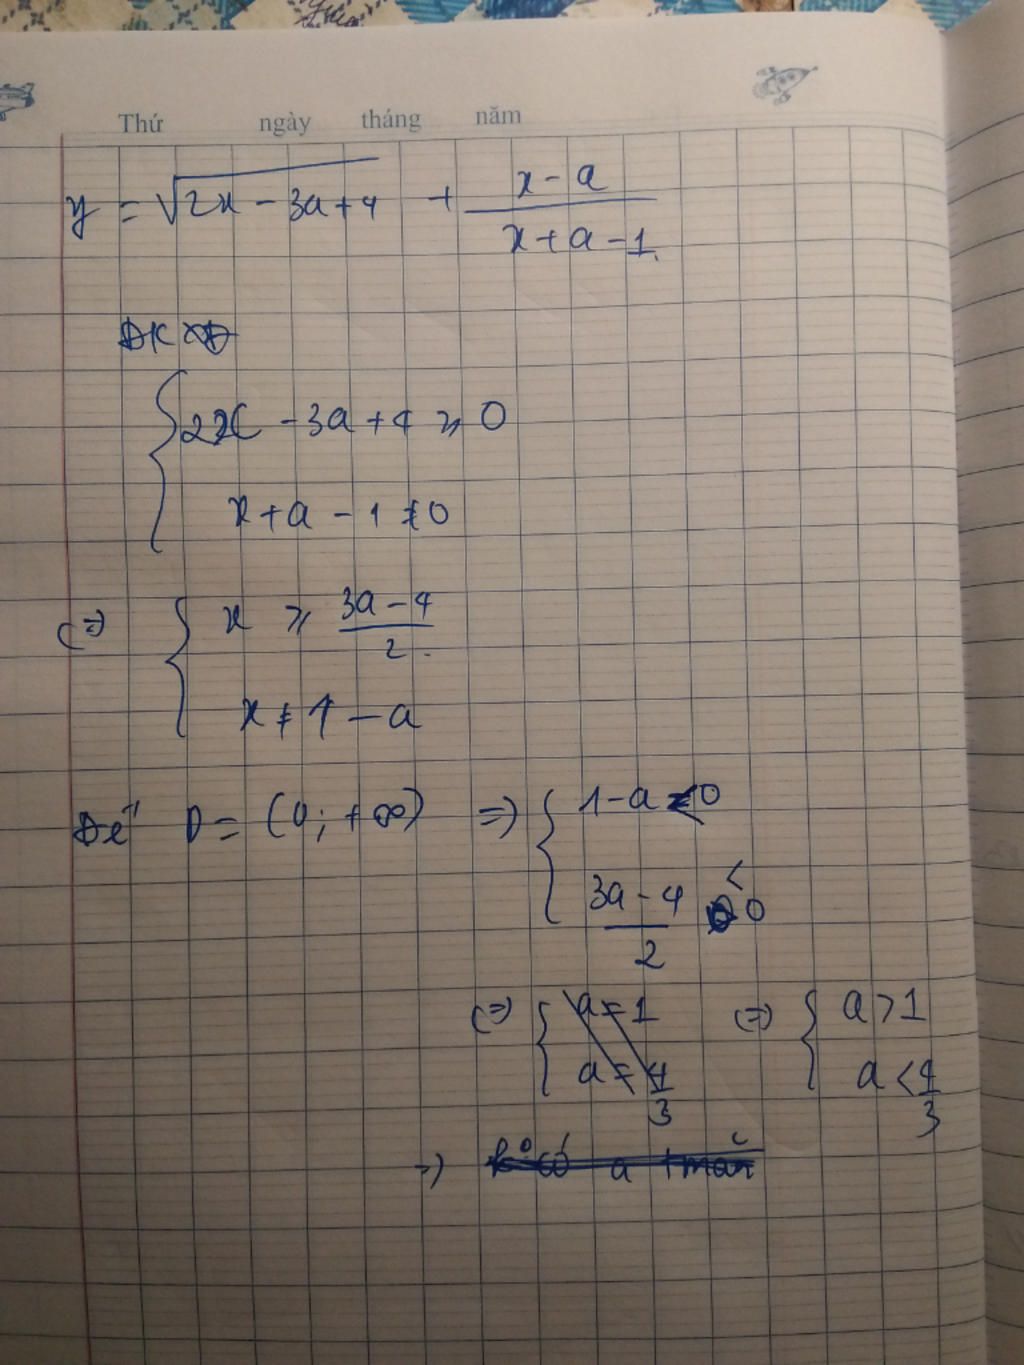 Thứ ngày tháng năm
y = √(2x - 3a + 4) + (x - a)/(x + a - 1)
ĐKXĐ
{ 2x - 3a + 4 ⩾ 0
x + a - 1 ≠ 0
(=) { x ⩾ (3a - 4)/2
x ≠ 1 - a
Để D = (0; +∞) =) { 1 - a < 0
(3a - 4)/2 < 0
(=) { a = 1 (=) { a > 1
a = 4/3 a < 4/3
=) k° có a tmãn